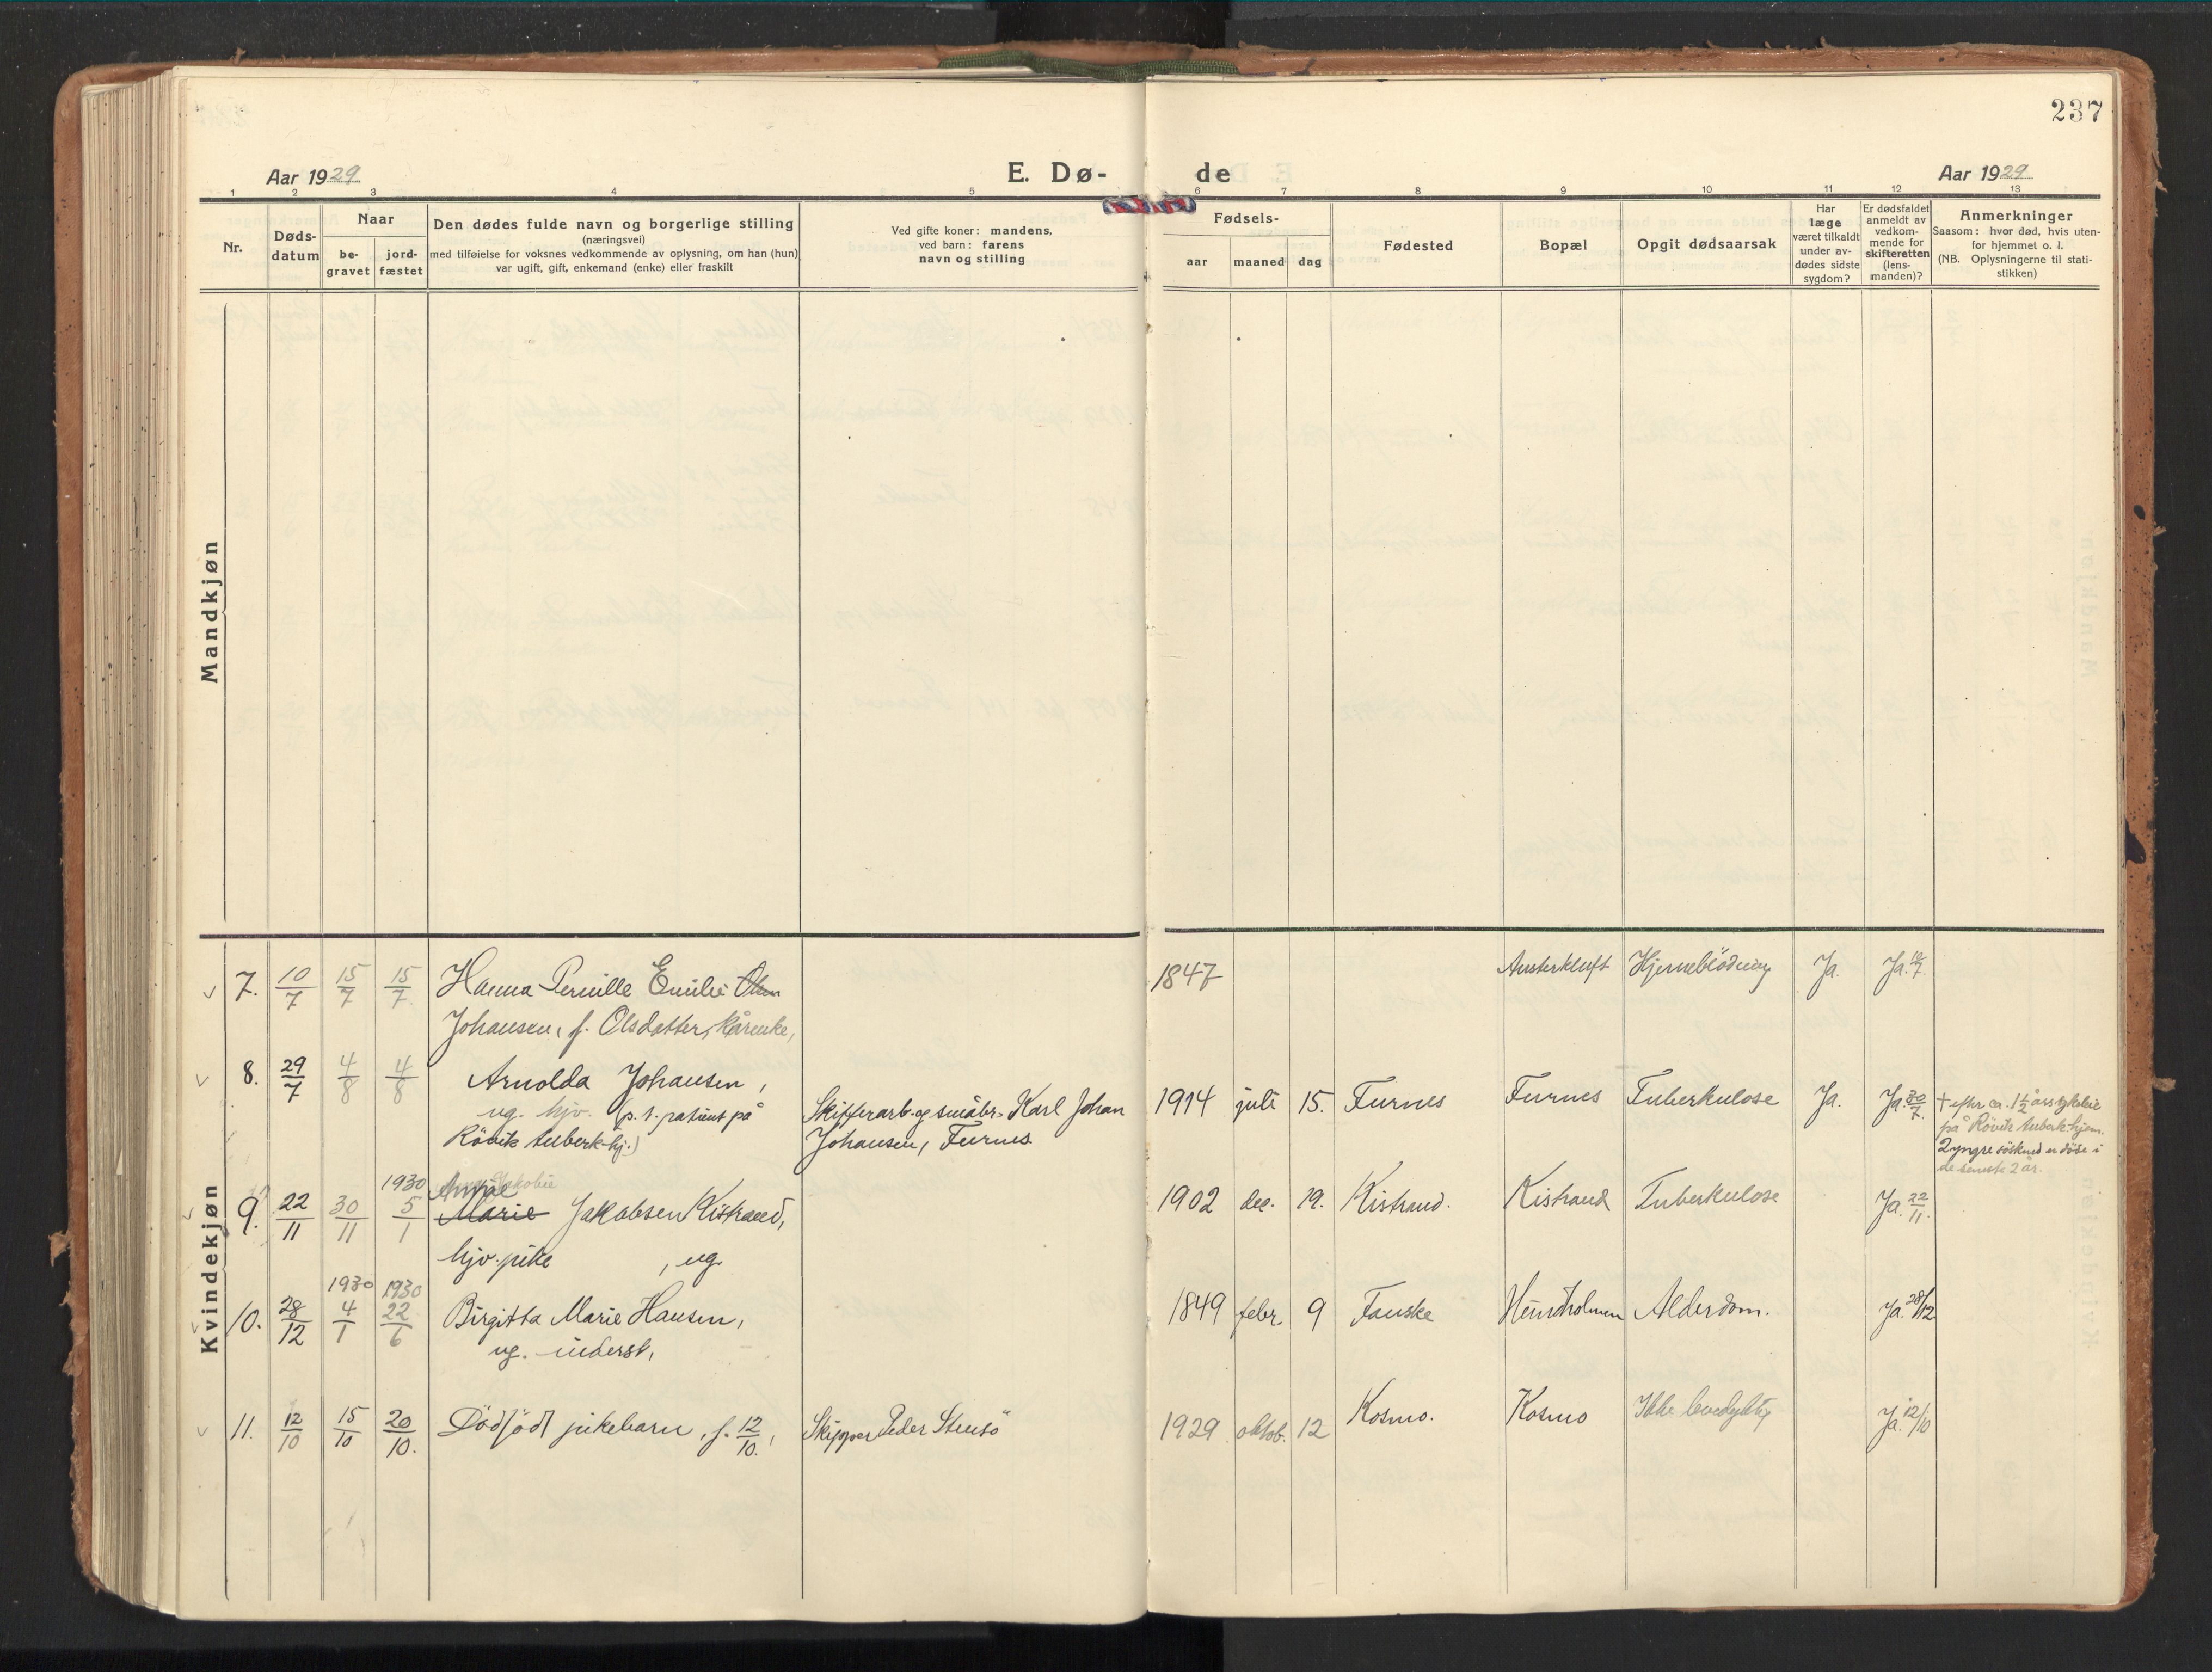 237
Aar 1929
E. Dø-
de
Aar 1929
1 2 3 4 5 6 7 8 9 10 11 12 13
Nr.
Døds-
datum
Naar
be-
gravet
jord-
fæstet
Den dødes fulde navn og borgerlige stilling
(næringsvei)
med tilføielse for voksnes vedkommende av oplysning, om han (hun)
var ugift, gift, enkemand (enke) eller fraskilt
Ved gifte koner: mandens,
ved barn: farens
navn og stilling
Fødsels-
aar
maaned
dag
Fødested
Bopæl
Opgit dødsaarsak
Har
læge
været tilkaldt
under av-
dødes sidste
sygdom?
Er dødsfaldet
anmeldt av
vedkom-
mende for
skifteretten
(lens-
manden)?
Anmerkninger
Saasom: hvor død, hvis uten-
for hjemmet o. l.
(NB. Oplysningerne til stati-
stikken)
Mandkjøn
Kvindekjøn
7. 10/7 15/7 15/7 Hanna Pernille Emilie Olsen 1847 Austerkluft Hjerneblödning Ja. Ja. 10/7
Johansen, f. Olsdatter, kårenke,
8. 29/7 4/8 4/8 Arnolda Johansen,
ug. hjv. (p. t. patient på Skifferarb. og småbr. Karl Johan 1914 juli 15. Furnes Furnes Tuberkulose Ja. Ja. 30/7.
Rövik tuberk.hj.) Johansen, Furnes
† efter ca. 1 1/2 års sykeleie
på Rövik tuberk.hjem.
2 yngre söskend er döde i
de seneste 2 år.
1930 Anna Jakobie
9. 22/11 30/11 5/1 Marie Jakobsen Kistrand, 1902 dec. 19. Kistrand. Kistrand Tuberkulose Ja. 22/11.
hjv. pike, ug.
1930 1930
10. 28/12 4/1 22/6 Birgitta Marie Hansen, 1849 febr. 9 Fauske Hundholmen Alderdom. Ja. 28/12
ug. inderst,
11. 12/10 15/10 20/10. Dödfödt pikebarn, f. 12/10., Skipper Peder Stensö 1929 oktob. 12 Kosmo. Kosmo Ikke levedyktig Ja. 12/10